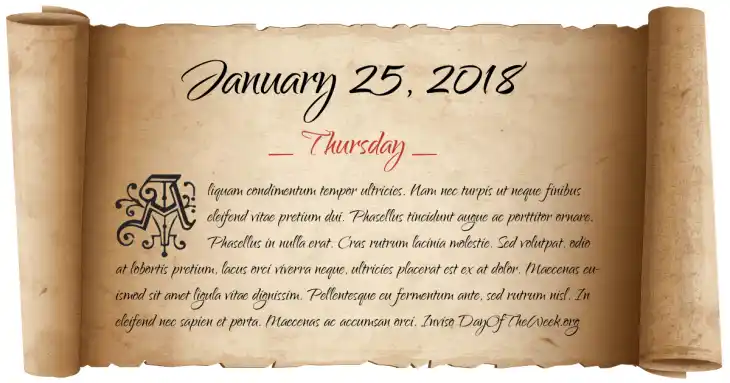 January 25, 2018
_ Thursday _
Aliquam condimentum tempor ultricies. Nam nec turpis ut neque finibus
eleifend vitae pretium dui. Phasellus tincidunt augue ac porttitor ornare.
Phasellus in nulla erat. Cras rutrum lacinia molestie. Sed volutpat, odio
at lobortis pretium, lacus orci viverra neque, ultricies placerat est ex at dolor. Maecenas eu-
ismod sit amet ligula vitae dignissim. Pellentesque eu fermentum ante, sed rutrum nisl. In
eleifend nec sapien et porta. Maecenas ac accumsan orci. Inviso DayOfTheWeek.org